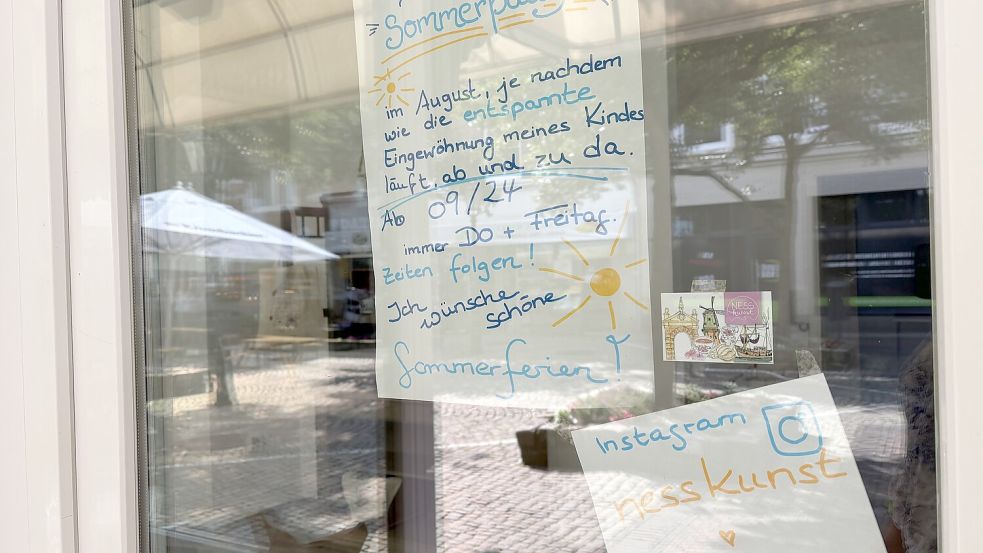 im August, je nachdem
wie die entspannte
Eingewöhnung meines Kindes
läuft, ab und zu da.
Ab 09/24
immer Do + Freitag.
Zeiten folgen!
Ich wünsche schöne
Sommerferien!
NESS
kunst
Instagram
nesskunst